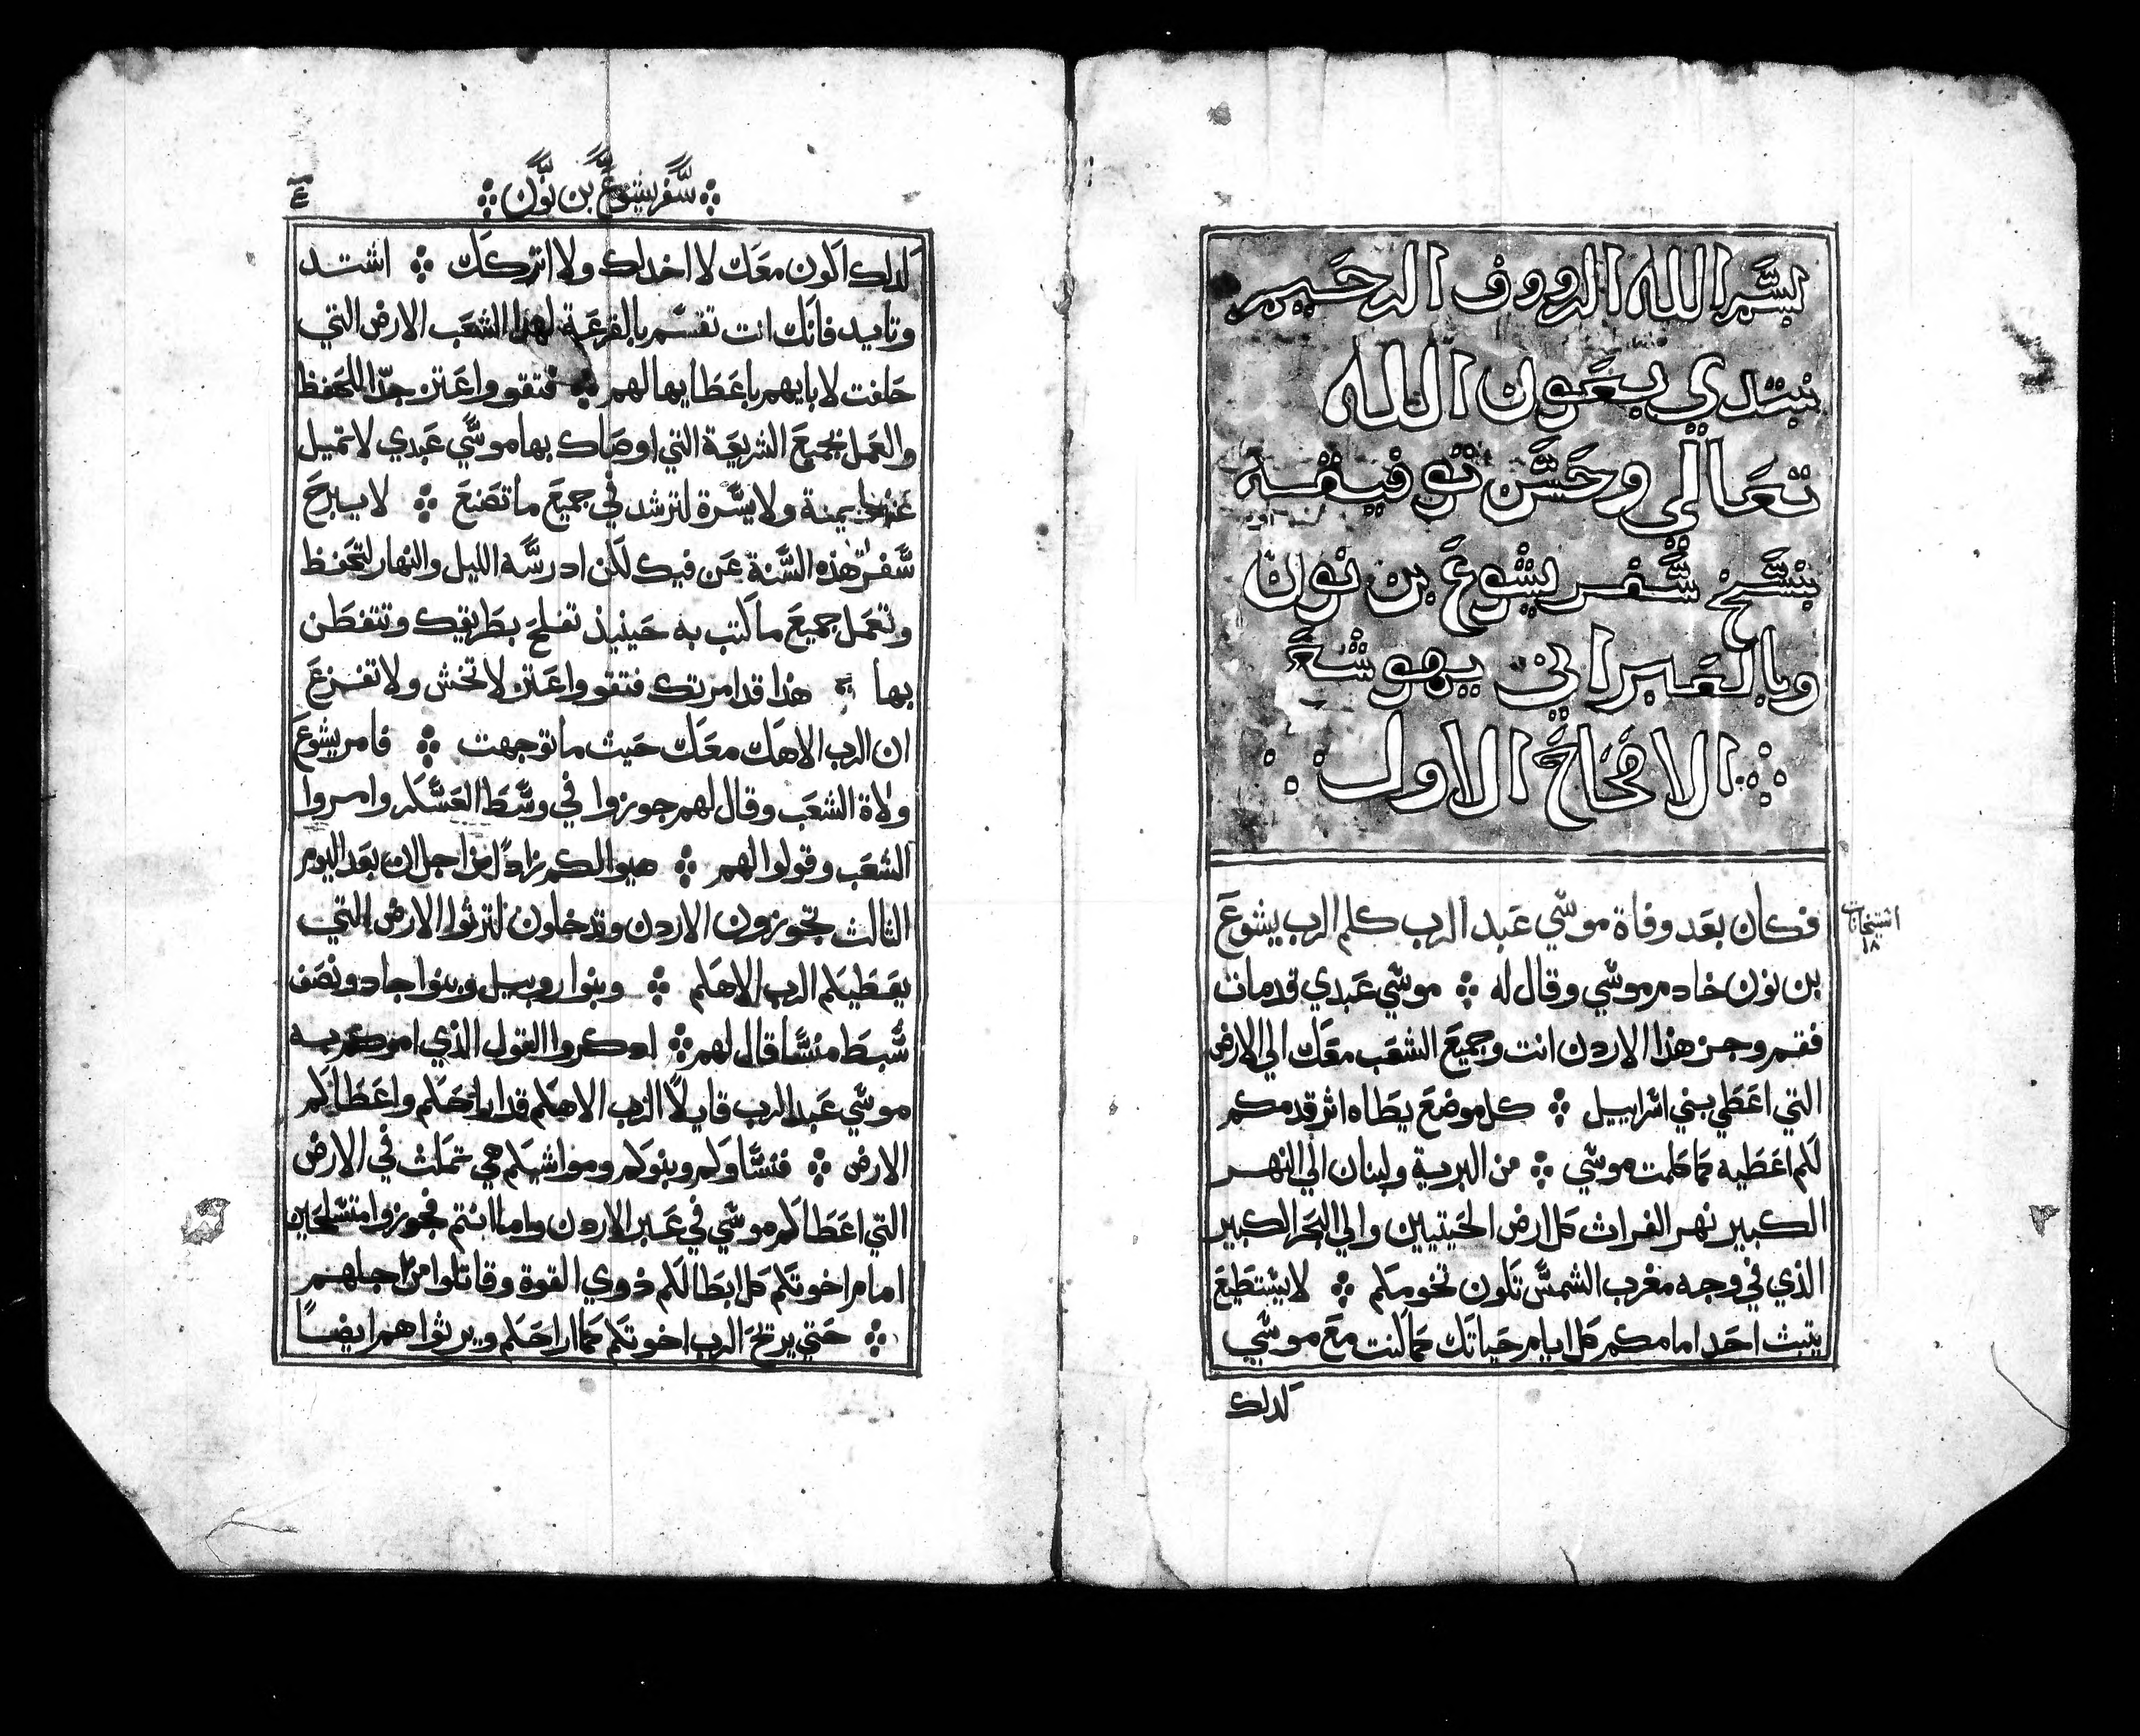 بسم الله الرووف الرحيم
نبتدي بعون الله
تعالي وحسن توفيقه
بنسخ سفر يشوع بن نون
وبالعبراني يهوشع
الاصحاح الاول
فكان بعد وفاة موسي عبد الرب كلم الرب يشوع
بن نون خادم موسي وقال له ۞ موسي عبدي قد مات
فقم وجز هذا الاردن انت وجميع الشعب معك الي الارض
التي اعطي بني اسراييل ۞ كل موضع يطاه اثر قدمكم
لكم اعطيه كما كلمت موسي ۞ من البرية ولبنان الي النهر
الكبير نهر الفرات كل ارض الحيتيين والي البحر الكبير
الذي في وجه مغرب الشمس تكون تخومكم ۞ لا يستطيع
يتبث احد امامكم كل ايام حياتك كما كنت مع موسي
كدلك
سفر يشوع بن نون
كدلك اكون معك لا اخدلك ولا اتركك ۞ اشتد
وتايد فانك انت تقسم بالقرعة لهذا الشعب الارض التي
حلفت لابايهم باعطايها لهم ۞ فتقو واعتز جدا لتحفظ
والعمل بجميع الشريعة التي اوصاك بها موسي عبدي لا تميل
عنها يمنة ولا يسرة لترشد في جميع ما تصنع ۞ لا يبرح
سفر هذه السنة عن فيك لكن ادرسه الليل والنهار لتحفظ
وتعمل جميع ما كتب به حينيذ تفلح بطريقك وتتفطن
بها ۞ هذا قد امرتك فتقو واعتز لا تخش ولا تفزع
ان الرب الاهك معك حيث ما توجهت ۞ فامر يشوع
ولاة الشعب وقال لهم جوزوا في وسط العسكر وامروا
الشعب وقولوا لهم ۞ هيوا لكم زادا من اجل ان بعد اليوم
الثالث تجوزون الاردن وتدخلون لترثوا الارض التي
يعطيكم الرب الاهكم ۞ وبنوا روبيل وبنوا جاد ونصف
سبط منسا قال لهم ۞ ادكروا القول الذي امركم به
موسي عبد الرب قايلا الرب الاهكم قد اراحكم واعطاكم
الارض ۞ فنساوكم وبنوكم ومواشيكم هي تمكث في الارض
التي اعطاكم موسي في عبر الاردن واما انتم فجوزوا متسلحين
امام اخوتكم كل ابطالكم ذوي القوة وقاتلوا من اجلهم
۞ حتي يريح الرب اخوتكم كما اراحكم ويرثوا هم ايضا